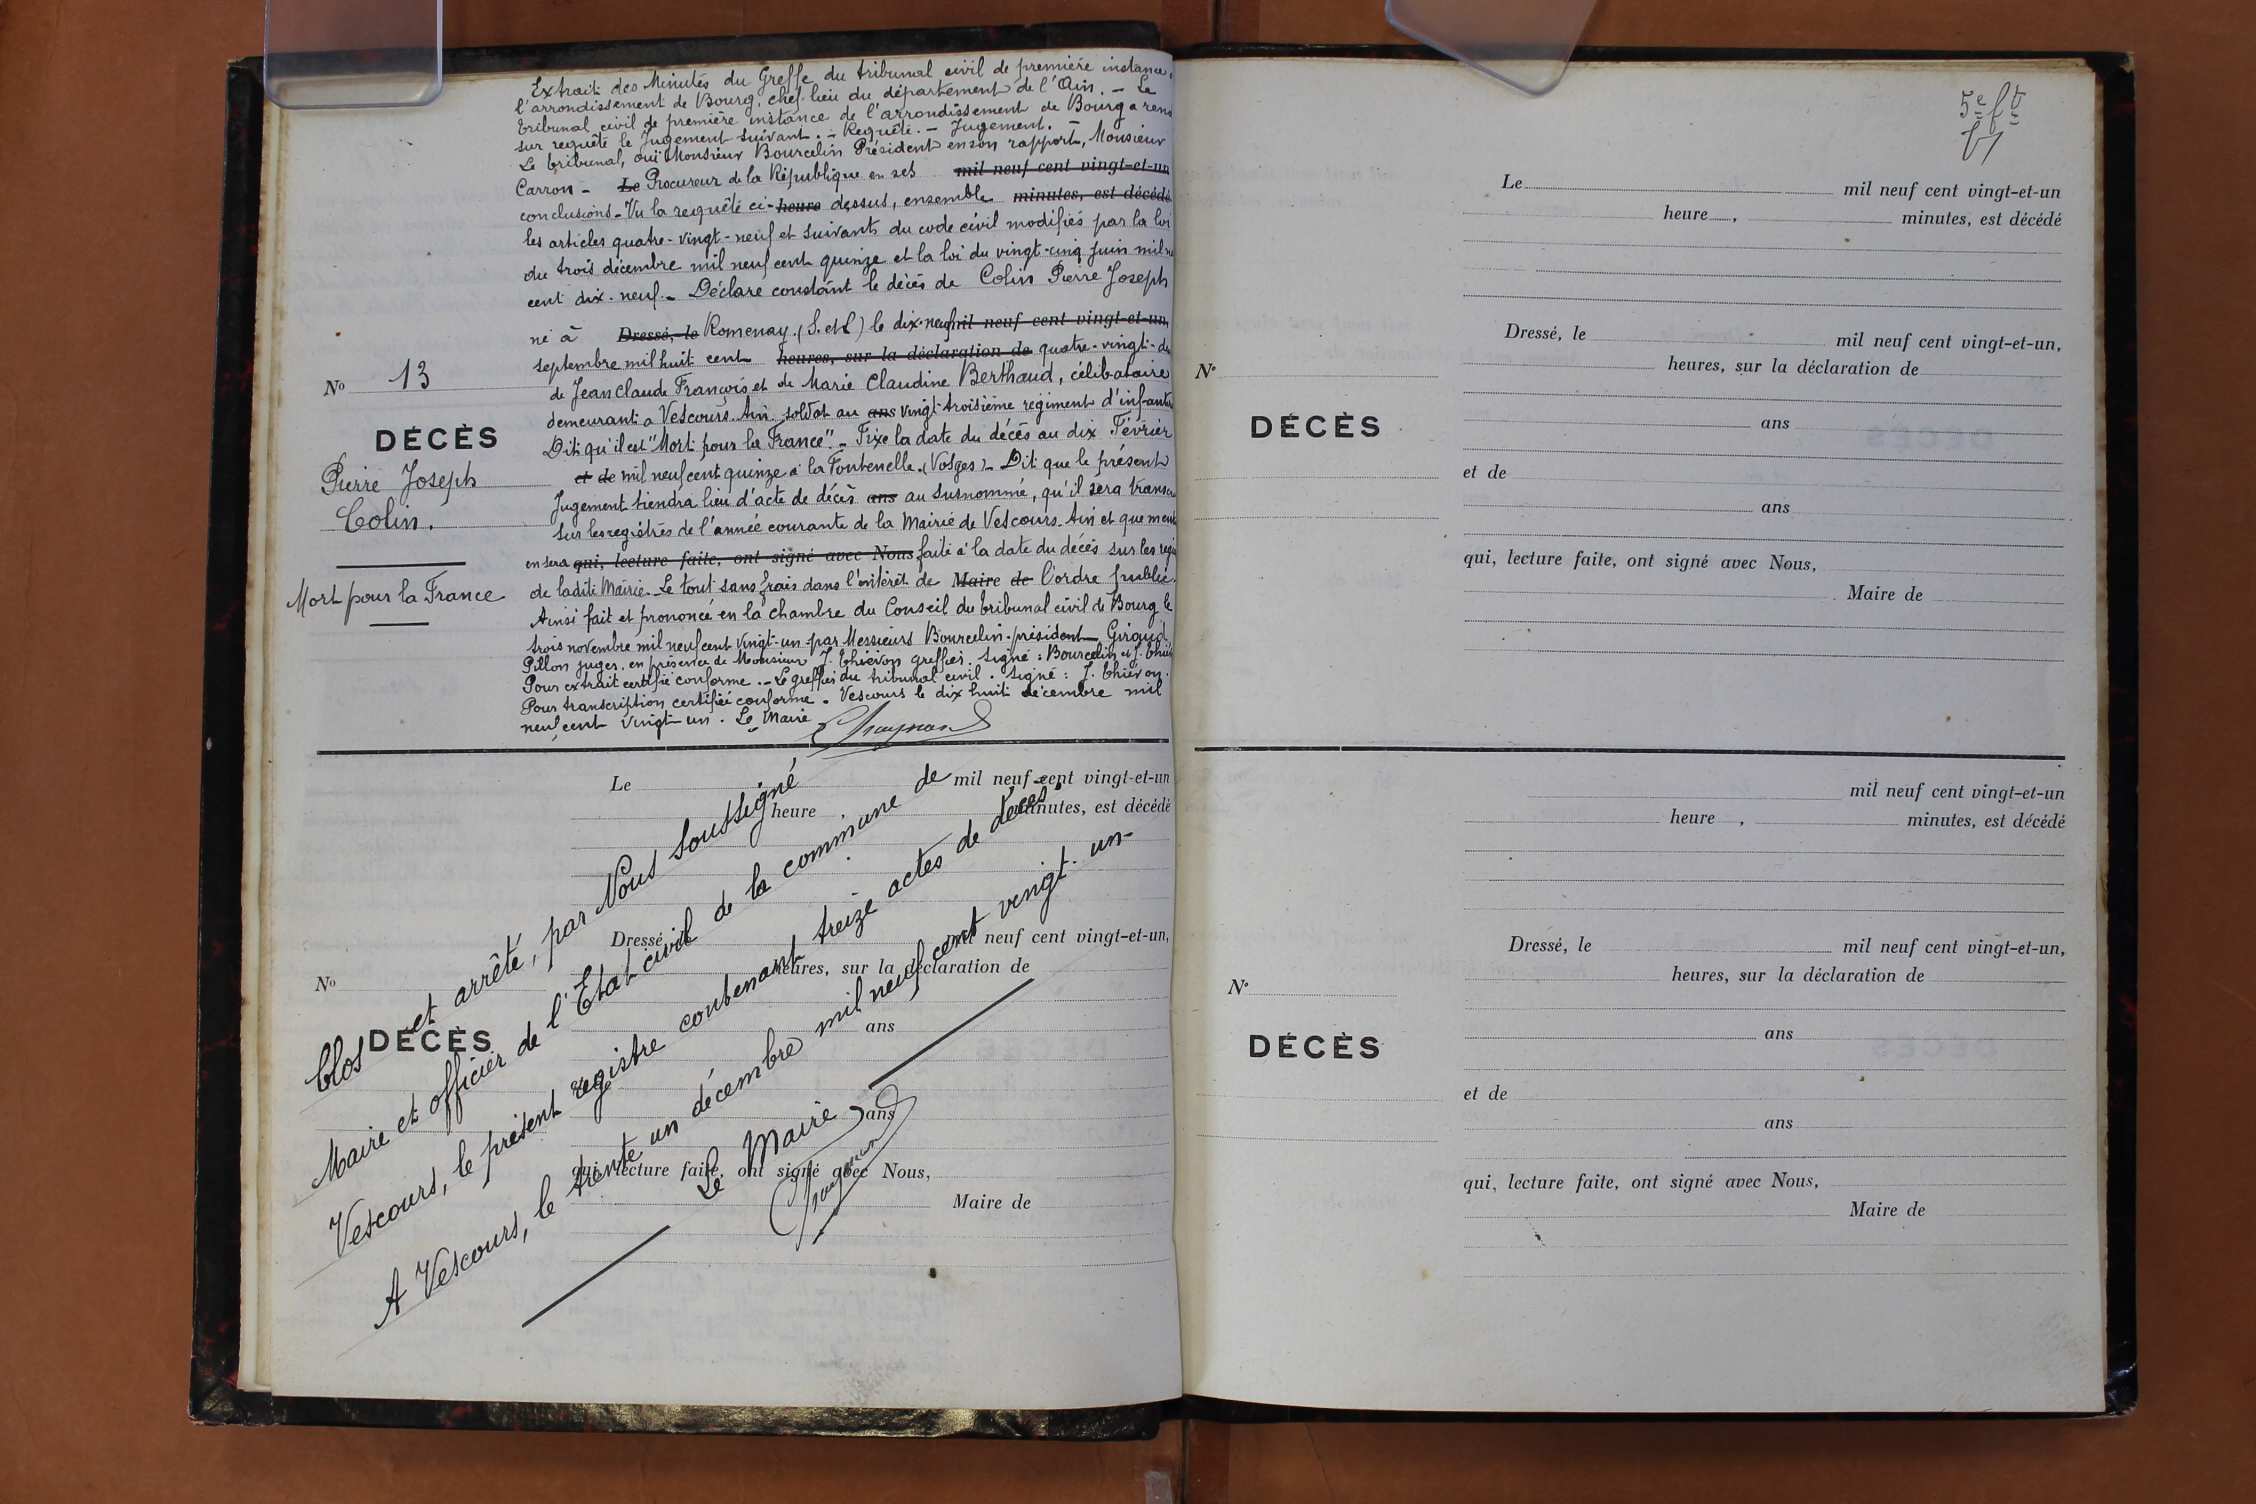 Extrait des Minutes du Greffe du tribunal civil de première instance
l'arrondissement de Bourg, chef-lieu du département de l'Ain. - Le
tribunal civil de première instance de l'arrondissement de Bourg a ren
sur requête le Jugement suivant. - Requête. - Jugement.
Le tribunal, ouï Monsieur Bourcelin Président en son rapport, Monsieur
Carron - Le Procureur de la République en ses mil neuf cent vingt-et-un
conclusions - Vu la requête ci-heure dessus, ensemble minutes, est décédé
les articles quatre-vingt-neuf et suivants du code civil modifiés par la loi
du trois décembre mil neuf cent quinze et la loi du vingt-cinq juin mil n
cent dix-neuf. - Déclare constant le décès de Colin Pierre Joseph
né à Dressé, le Romenay. (S.et L) le dix-neuf mil neuf cent vingt-et-un,
septembre mil huit cent heures, sur la déclaration de quatre-vingt-d
de Jean Claude François et de Marie Claudine Berthaud, célibataire
demeurant à Vescours. Ain. soldat au ans vingt-troisième régiment d'infant
Dit qu'il est "Mort pour la France" - Fixe la date du décès au dix Février
et de mil neuf cent quinze à la Fontenelle. (Vosges) - Dit que le présent
Jugement tiendra lieu d'acte de décès ans au susnommé, qu'il sera transc
sur les registres de l'année courante de la Mairie de Vescours. Ain et que ment
en sera qui, lecture faite, ont signé avec Nous faite à la date du décès sur les regi
de ladite Mairie. Le tout sans frais dans l'intérêt de Maire de l'ordre public.
Ainsi fait et prononcé en la chambre du Conseil du tribunal civil de Bourg le
trois novembre mil neuf cent vingt-un par Messieurs Bourcelin. président - Giroud
Pillon juges, en présence de Monsieur J. Thiévon greffier. Signé : Bourcelin et J. Thiév
Pour extrait certifié conforme. - Le greffier du tribunal civil. Signé : J. Thiévon.
Pour transcription certifiée conforme. Vescours le dix huit décembre mil
neuf cent vingt un. Le Maire
No 13
DÉCÈS
Pierre Joseph
Colin.
Mort pour la France
Le mil neuf cent vingt-et-un
heure , minutes, est décédé
Dressé, le mil neuf cent vingt-et-un,
heures, sur la déclaration de
No
DÉCÈS
ans
ans
qui, lecture faite, ont signé avec Nous,
Maire de
Clos et arrêté, par Nous soussigné
Maire et officier de l'Etat civil de la commune de
Vescours, le présent registre contenant treize actes de décès.
A Vescours, le trente un décembre mil neuf cent vingt-un-
Le Maire
5e ft
Le mil neuf cent vingt-et-un
heure , minutes, est décédé
Dressé, le mil neuf cent vingt-et-un,
heures, sur la déclaration de
No
DÉCÈS
ans
et de
ans
qui, lecture faite, ont signé avec Nous,
Maire de
mil neuf cent vingt-et-un
heure , minutes, est décédé
Dressé, le mil neuf cent vingt-et-un,
heures, sur la déclaration de
No
DÉCÈS
ans
et de
ans
qui, lecture faite, ont signé avec Nous,
Maire de